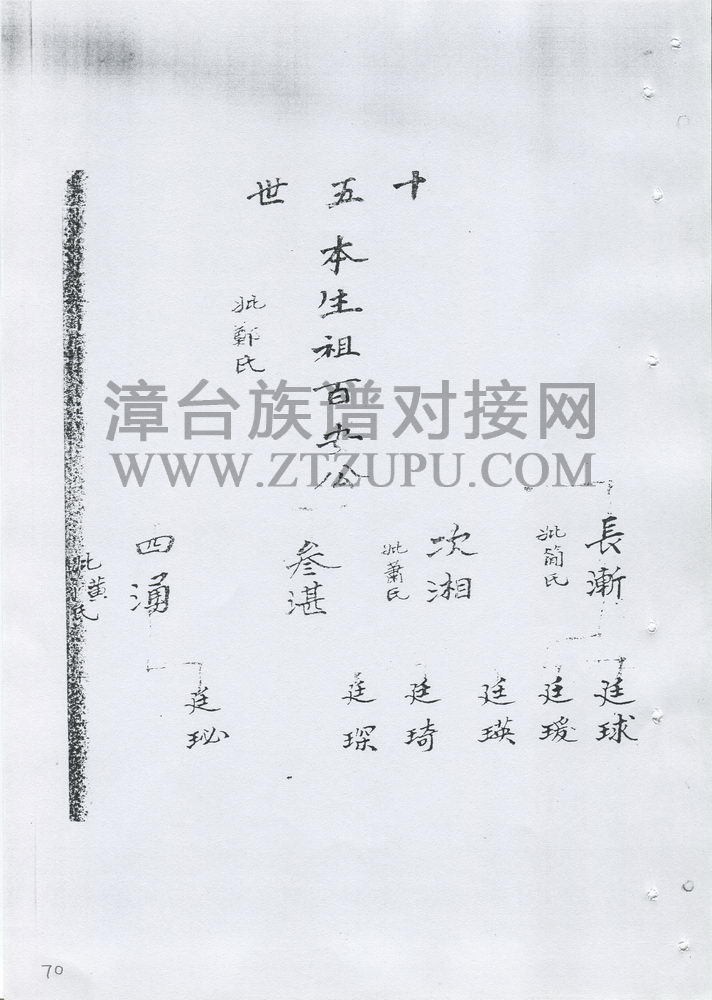 十五世
本生祖百安公
妣鄭氏
長漸
妣簡氏
次湘
妣蕭氏
叁湛
四湧
妣黃氏
廷球
廷瑗
廷瑛
廷琦
廷琛
廷珌
漳台族谱对接网
WWW.ZTZUPU.COM
70